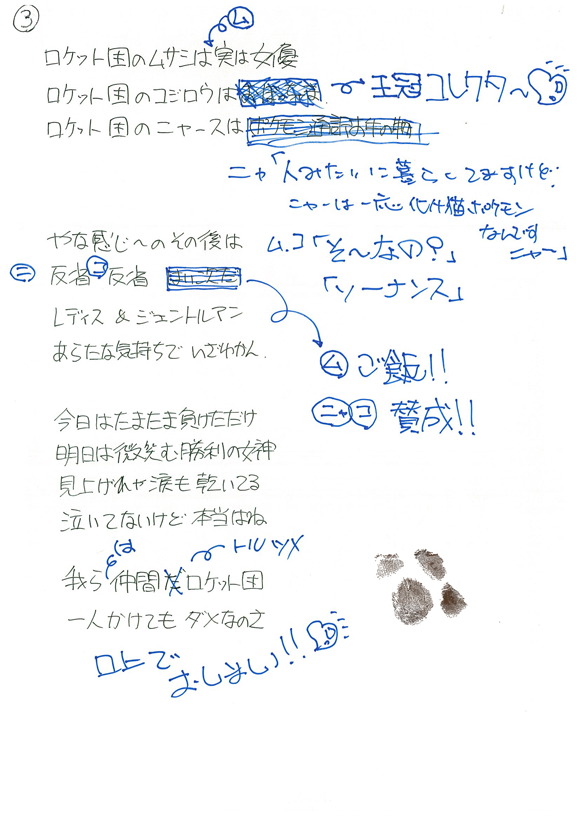 ③
ム
ロケット団のムサシは実は女優
ロケット団のコジロウは
王冠コレクター
ロケット団のニャースは
ニャ「人みたいに暮らしてますけど…
ニャーは一応化け猫ポケモン
なんですニャー」
やな感じへのその後は
ム.コ「そ〜なの?」
ニ 反省 コ 反省
「ソーナンス」
Lディス & ジェントルアン
あらたな気持ちで いざわかん.
ム ご飯!!
ニャ コ 賛成!!
今日はたまたま負けただけ
明日は微笑む勝利の女神
見上げれゃ涙も乾いてる
泣いてないけど 本当はね
は
トルツメ
我ら 仲間だ ロケット団
一人かけても ダメなのさ
口上で
おしまい!!